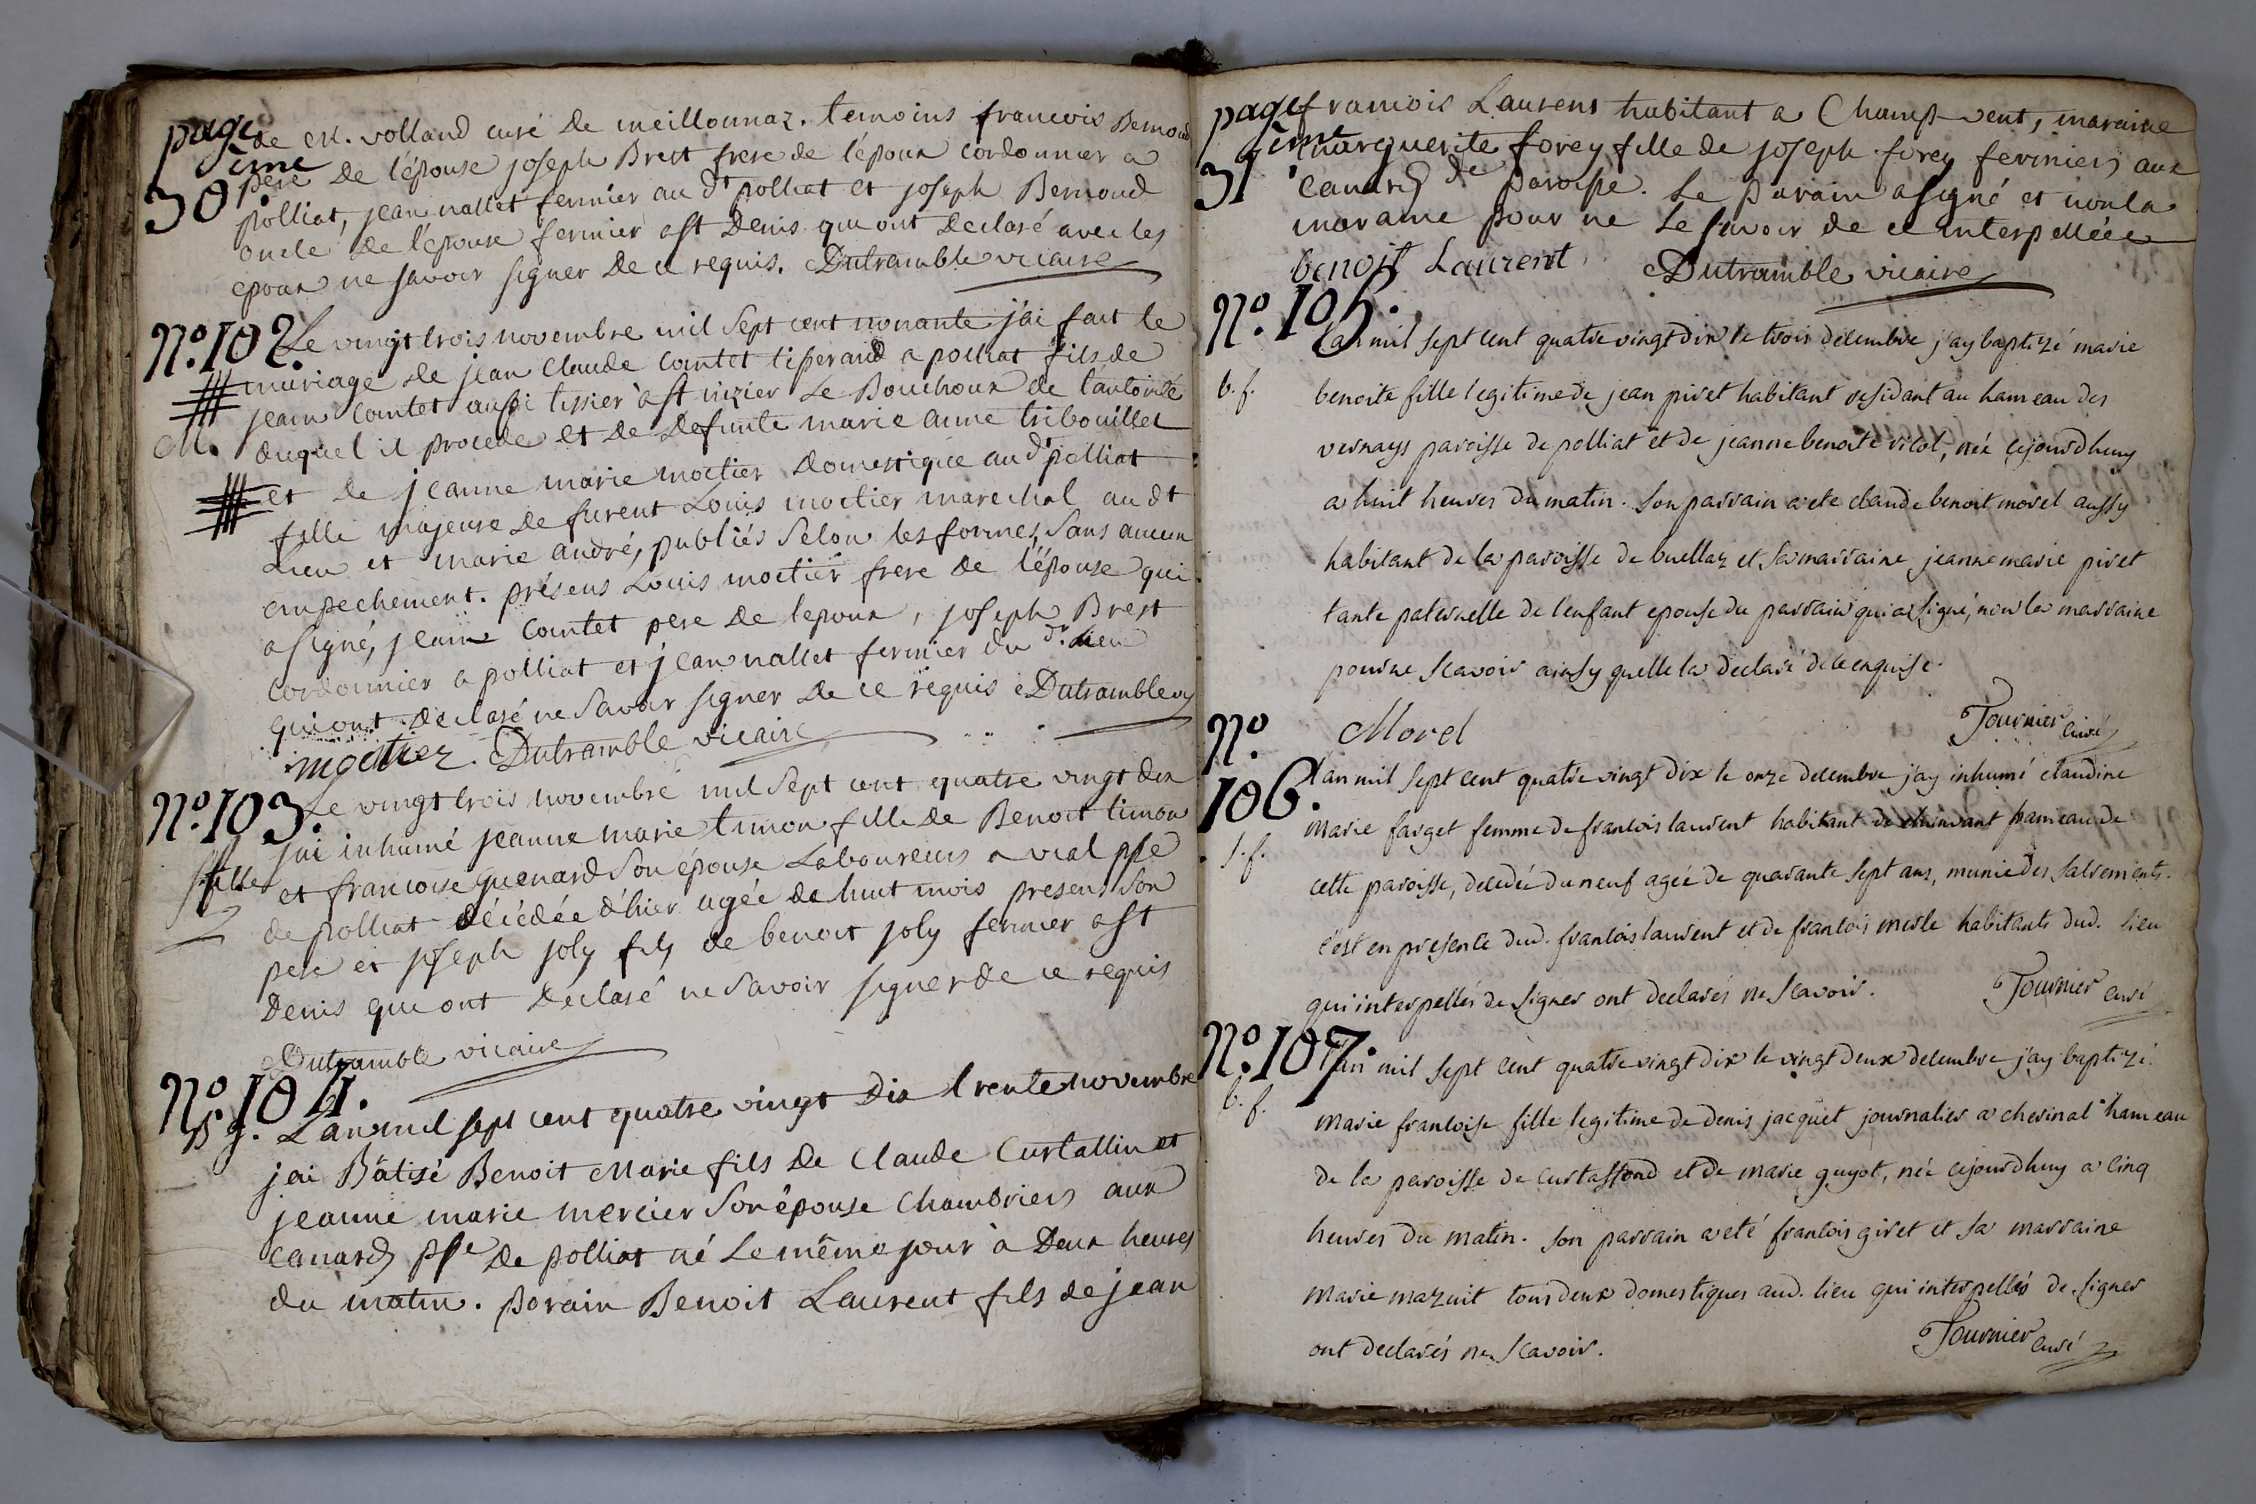 page
30
ème
de M. volland curé de meillonnaz. temoins francois Bernoud
pere De l'épouse joseph Brest frere de l'époux cordonnier a
polliat, jean nallet fermier au dt polliat et joseph Bernoud
oncle De l'epouse fermier a st Denis qui ont Declaré avec les
epoux ne savoir signer De ce requis. Dutramble vicaire
No. 102.
M.
Le vingt trois novembre mil sept cent nonante j'ai fait le
mariage De jean Claude Comtet tisserand a polliat fils de
jean Comtet aussi tissier a st nizier Le Bouchoux de l'autorité
duquel il procede et De Defunte marie anne tribouillet
et De jeanne marie moctier Domestique au dt polliat
fille majeure De furent Louis moctier marechal au dt
Lieu et marie andré, publiés Selon les formes, Sans aucun
empechement. présens Louis moctier frere De l'épouse qui
a signé, jean Comtet pere De lepoux, joseph Brest
cordonnier a polliat et jean nallet fermier du dt. lieu
qui ont Declaré ne Savoir signer De ce requis Dutramble
moctier. Dutramble vicaire
No. 103.
s. fille
Le vingt trois novembre mil sept cent quatre vingt dix
jai inhumé jeanne marie timon fille De Benoit timon
et francoise Guenard Son épouse Laboureurs a vial psse
de polliat décédée d'hier agée de huit mois presens Son
pere et joseph joly fils de benoit joly fermier a st
Denis qui ont Déclaré ne Savoir signer de ce requis
Dutramble vicaire
No. 104.
B g.
L'an mil sept cent quatre vingt Dix trente novembre
jai Bâtisé Benoit Marie fils De Claude Curtallin et
jeanne marie mercier Son épouse Chambriers aux
Canards psse De polliat né Le même jour à Deux heures
du matin. Parain Benoit Laurent fils de jean
page
31
ème
francois Laurens habitant a Champ-vent, maraine
marguerite forey fille de joseph forey fermiers aux
Canards de paroisse. Le Parain a signé et non la
maraine pour ne Le savoir de ce interpellée
benoit Laurent. Dutramble vicaire
No. 105.
b. f.
L'an mil sept cent quatre vingt dix le trois decembre j'ay baptizé marie
benoite fille legitime de jean piret habitant residant au hameau des
vernays paroisse de polliat et de jeanne benoite vilot, née cejourdhuy
a huit heures du matin. Son parrain a ete claude benoit morel aussy
habitant de la paroisse de buellaz et sa marraine jeanne marie piret
tante paternelle de l'enfant epouse du parrain qui a signé, non la marraine
pour ne scavoir ainsy quelle la declaré de ce enquise.
Morel
Tournier curé
No
106.
s. f.
L'an mil sept cent quatre vingt dix le onze decembre j'ay inhumé claudine
marie farget femme de francois laurent habitant de chanvant hameau de
cette paroisse, decedée du neuf agée de quarante sept ans, munie des sacrements.
c'est en presence dud. francois laurent et de francois merle habitants dud. lieu
qui interpellés de signer ont declarés ne scavoir. Tournier curé
No. 107.
b. f.
L'an mil sept cent quatre vingt dix le vingt deux decembre j'ay baptizé
marie francoise fille legitime de denis jacquet journalier a chevinal hameau
de la paroisse de curtaffond et de marie guyot, née cejourdhuy a cinq
heures du matin. Son parrain a eté francois giret et sa marraine
marie mazuit tous deux domestiques aud. lieu qui interpellés de signer
ont declarés ne scavoir.
Tournier curé